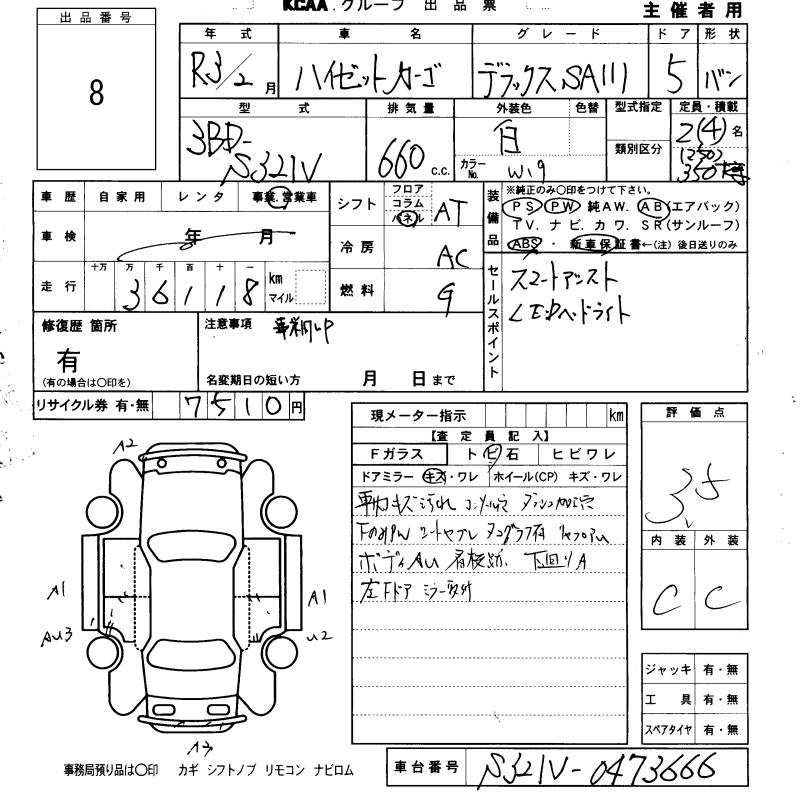 KCAA グループ 出品票
主催者用
出品番号
8
年式 車名 グレード ドア 形状
R3/2月 ハイゼットカーゴ デラックスSAIII 5 バン
型式 排気量 外装色 色替 型式指定 定員・積載
3BD-S321V 660 c.c. 白 カラーNo. W19 類別区分 2(4)名
350
車歴 自家用 レンタ 事業.営業車
シフト フロア コラム パネル AT
装備品 ※純正のみ〇印をつけて下さい。
PS PW 純AW. AB(エアバック)
TV. ナビ. カワ. SR(サンルーフ)
ABS ・ 新車保証書←(注) 後日送りのみ
車検 年 月
冷房 AC
走行 十万 万 千 百 十 一 km マイル
36118
燃料 G
セールスポイント
スマートアシスト
LEDヘッドライト
修復歴 箇所
有
(有の場合は〇印を)
注意事項
名変期日の短い方 月 日まで
リサイクル券 有・無 7510円
現メーター指示 km
【査定員記入】
Fガラス トビ石 ヒビワレ
ドアミラー キズ・ワレ ホイール(CP) キズ・ワレ
車内キズ汚れ
ボディAU 下回りA
左Fドア ミラー
評価点
3.5
内装 外装
C C
ジャッキ 有・無
工具 有・無
スペアタイヤ 有・無
A2
A1
A1
AU3
U2
事務局預り品は〇印 カギ シフトノブ リモコン ナビロム
車台番号 S321V-0473666